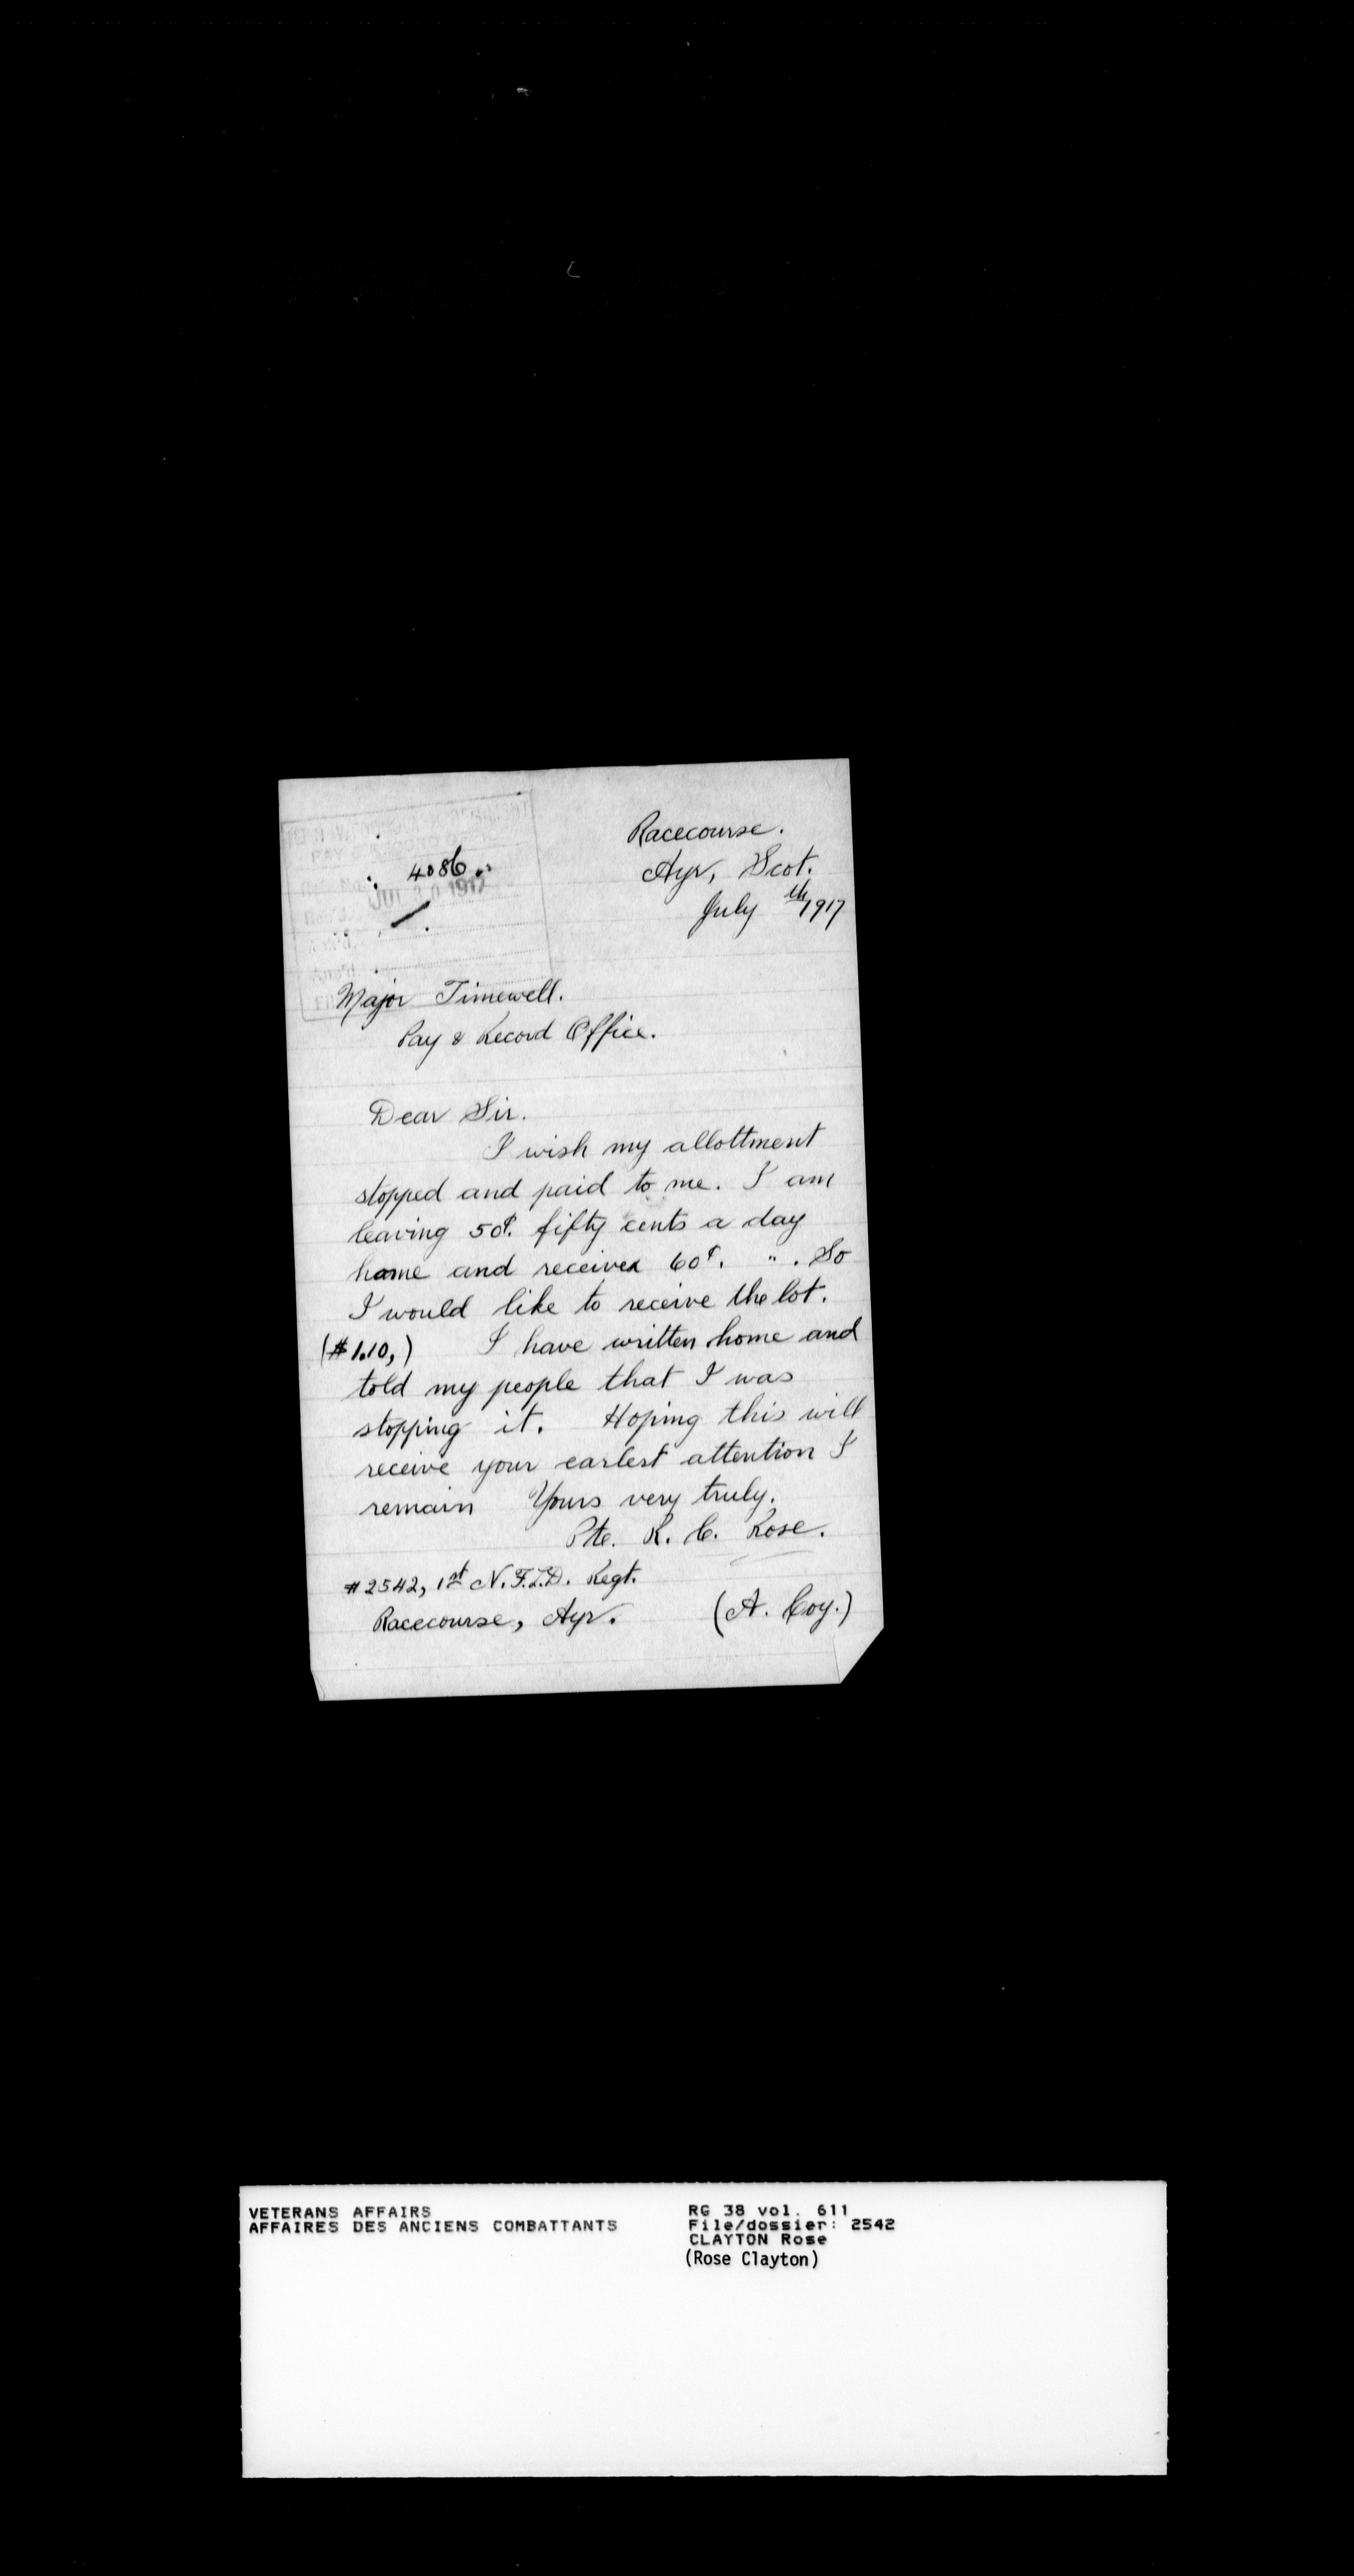 Racecourse.
Ayr, Scot.
July th/1917
4086
PAY & RECORD
JUL 20 1917
Major Timewell.
Pay & Record Office.
Dear Sir.
I wish my allottment
stopped and paid to me. I am
leaving 50¢. fifty cents a day
home and receive 60¢. " . So
I would like to receive the lot.
($1.10,) I have written home and
told my people that I was
stopping it. Hoping this will
receive your earlest attention I
remain Yours very truly.
Pte. R. C. Rose.
#2542, 1st N.F.L.D. Regt.
Racecourse, Ayr. (A. Coy.)
VETERANS AFFAIRS
AFFAIRES DES ANCIENS COMBATTANTS
RG 38 vol. 611
File/dossier: 2542
CLAYTON Rose
(Rose Clayton)